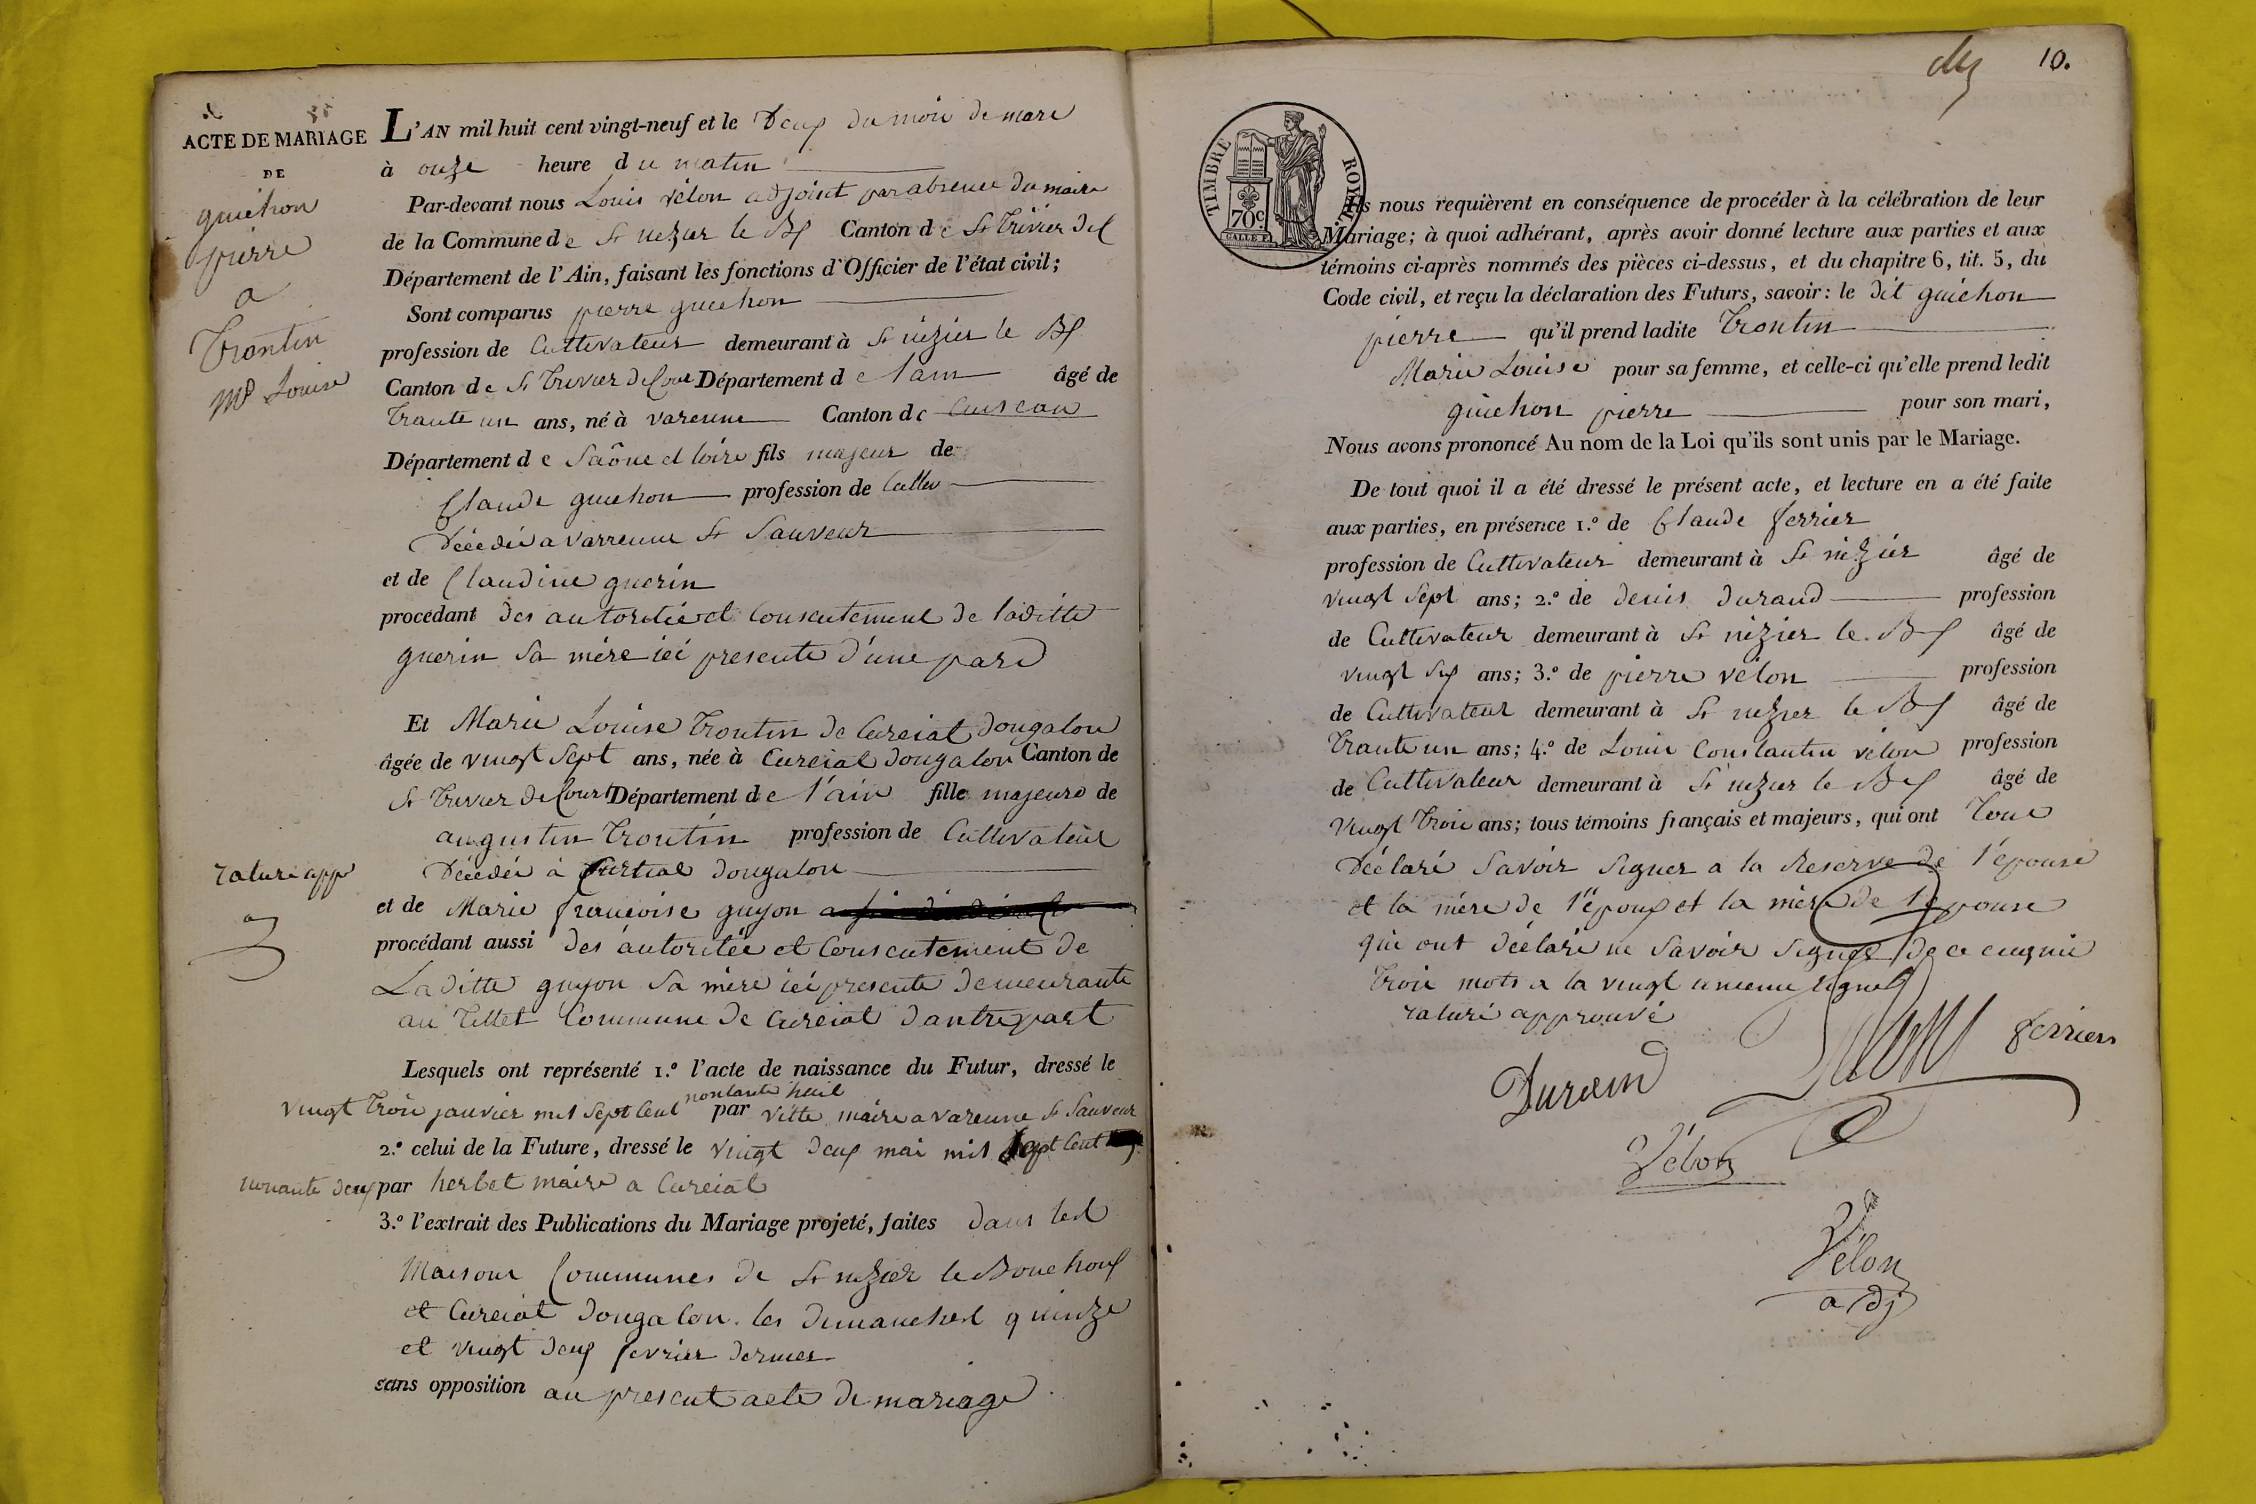 ACTE DE MARIAGE
DE
guichon
pierre
a
Trontin
Mie Louise
L'AN mil huit cent vingt-neuf et le Deux du mois de mars
à onze heure du matin
Par-devant nous Louis vélon adjoint par absence du maire
de la Commune de St nizier le Bx Canton de St Trivier de C
Département de l'Ain, faisant les fonctions d'Officier de l'état civil;
Sont comparus pierre guichon
profession de Cultivateur demeurant à St nizier le Bx
Canton de St Trivier de Cour Département de l'ain âgé de
Trante un ans, né à varenne Canton de Cuiseau
Département de Saône et loire fils majeur de
Claude guichon profession de Cultiv
Décédé a varrenne St Sauveur
et de Claudine guerin
procédant des autoritée et Consentement de laditte
guerin sa mére ici presente d'une part
Et Marie Louise Trontin de Curciat dougalon
âgée de vingt Sept ans, née à Curciat dougalon Canton de
St Trivier de Court Département de l'ain fille majeure de
augustin Trontin profession de Cultivateur
Décédé à Curtiat dougalon
rature app
et de Marie françoise guyon
procédant aussi des autoritée et Consentement de
Laditte guyon sa mére ici presente demeurante
au Tillet Commune de Curciat d'autre part
Lesquels ont représenté 1.º l'acte de naissance du Futur, dressé le
nontante huit
vingt Trois janvier mil sept Cent par vitte maire a varenne St Sauveur
2.º celui de la Future, dressé le vingt deux mai mil Sept Cent
nonante deux par herbet maire a Curciat
3.º l'extrait des Publications du Mariage projeté, faites dans les
Maisons Communes de St nizier le Bouchoux
et Curciat dougalon les dimanches quinze
et vingt deux fevrier dernier
sans opposition au present acte de mariage
10.
TIMBRE ROYAL
70c
Ils nous requièrent en conséquence de procéder à la célébration de leur
Mariage; à quoi adhérant, après avoir donné lecture aux parties et aux
témoins ci-après nommés des pièces ci-dessus, et du chapitre 6, tit. 5, du
Code civil, et reçu la déclaration des Futurs, savoir: le dit guichon
pierre qu'il prend ladite Trontin
Marie Louise pour sa femme, et celle-ci qu'elle prend ledit
guichon pierre pour son mari,
Nous avons prononcé Au nom de la Loi qu'ils sont unis par le Mariage.
De tout quoi il a été dressé le présent acte, et lecture en a été faite
aux parties, en présence 1.º de Claude ferrier
profession de Cultivateur demeurant à St nizier âgé de
vingt Sept ans; 2.º de denis durand profession
de Cultivateur demeurant à St nizier le Bx âgé de
vingt Six ans; 3.º de pierre vélon profession
de Cultivateur demeurant à St nizier le Bx âgé de
Trante un ans; 4.º de Louis Constantin vélon profession
de Cultivateur demeurant à St nizier le Bx âgé de
Vingt Trois ans; tous témoins français et majeurs, qui ont Tous
Déclaré Savoir Signer a la Reserve de l'épouse
et la mére de l'époux et la mére de l'epouse
qui ont déclaré ne Savoir Signer de ce enquis
Trois mots a la vingt unieme ligne
raturé approuvé
ferrier
Durand
Vélon
Vélon
adj